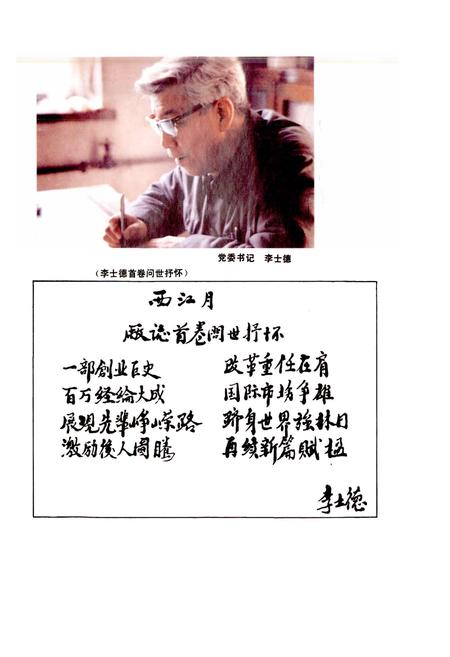 党委书记 李士德
(李士德首卷问世抒怀)
西江月
厰誌首卷问世抒怀
一部創业巨史
百万经纶大成
展现先辈峥嵘路
激励後人图腾
改革重任在肩
国际市场争雄
跻身世界強林日
再续新篇赋
李士德